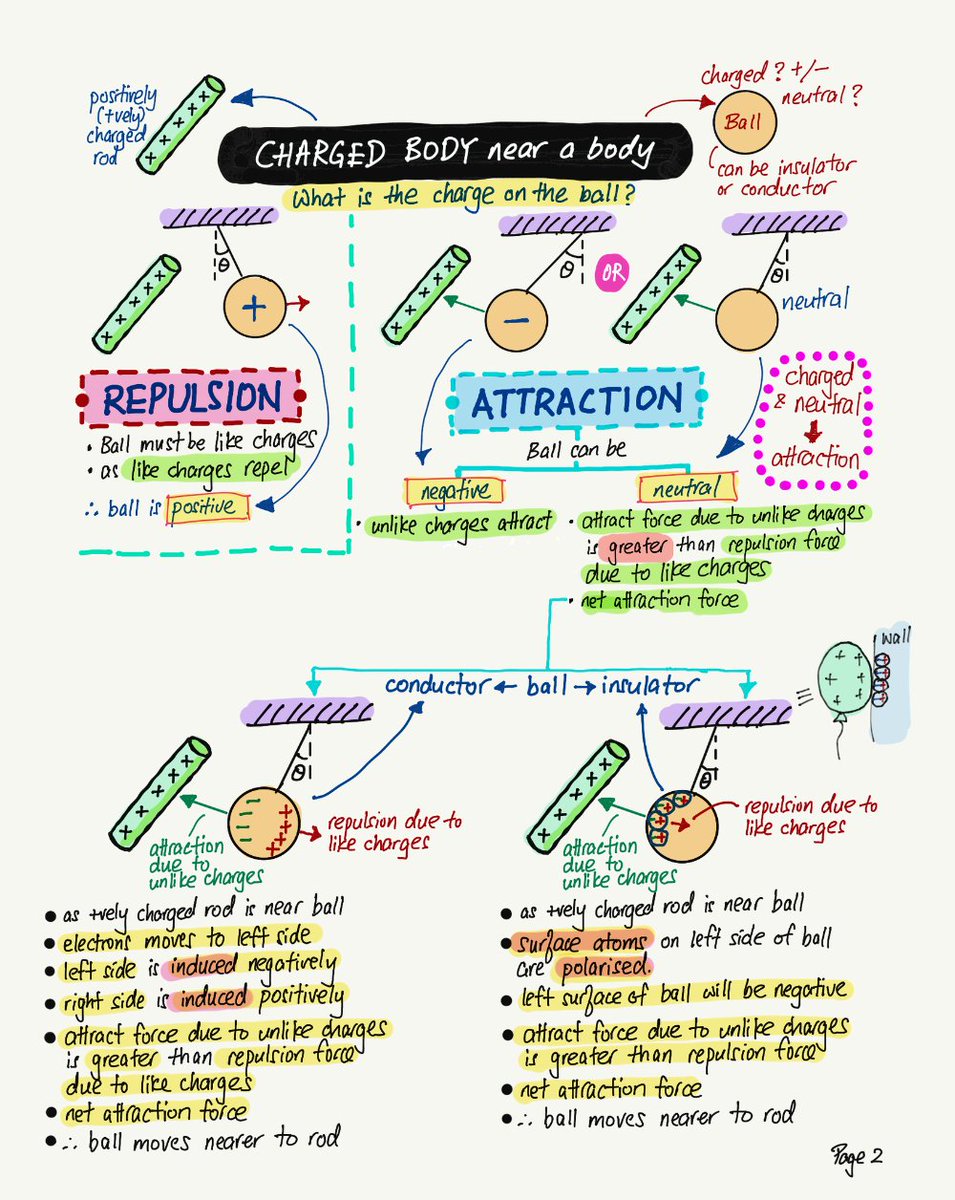 positively
(+vely)
charged
rod
charged? +/-
neutral?
Ball
can be insulator
or conductor
CHARGED BODY near a body
What is the charge on the ball?
θ
+
θ
-
OR
θ
neutral
REPULSION
• Ball must be like charges
• as like charges repel
∴ ball is positive
ATTRACTION
Ball can be
charged
& neutral
attraction
negative
• unlike charges attract
neutral
• attract force due to unlike charges
is greater than repulsion force
due to like charges
• net attraction force
conductor ← ball → insulator
wall
θ
attraction
due to
unlike charges
repulsion due to
like charges
θ
attraction
due to
unlike charges
repulsion due to
like charges
• as +vely charged rod is near ball
• electrons moves to left side
• left side is induced negatively
• right side is induced positively
• attract force due to unlike charges
is greater than repulsion force
due to like charges
• net attraction force
• ∴ ball moves nearer to rod
• as +vely charged rod is near ball
• surface atoms on left side of ball
are polarised.
• left surface of ball will be negative
• attract force due to unlike charges
is greater than repulsion force
• net attraction force
• ∴ ball moves nearer to rod
Page 2